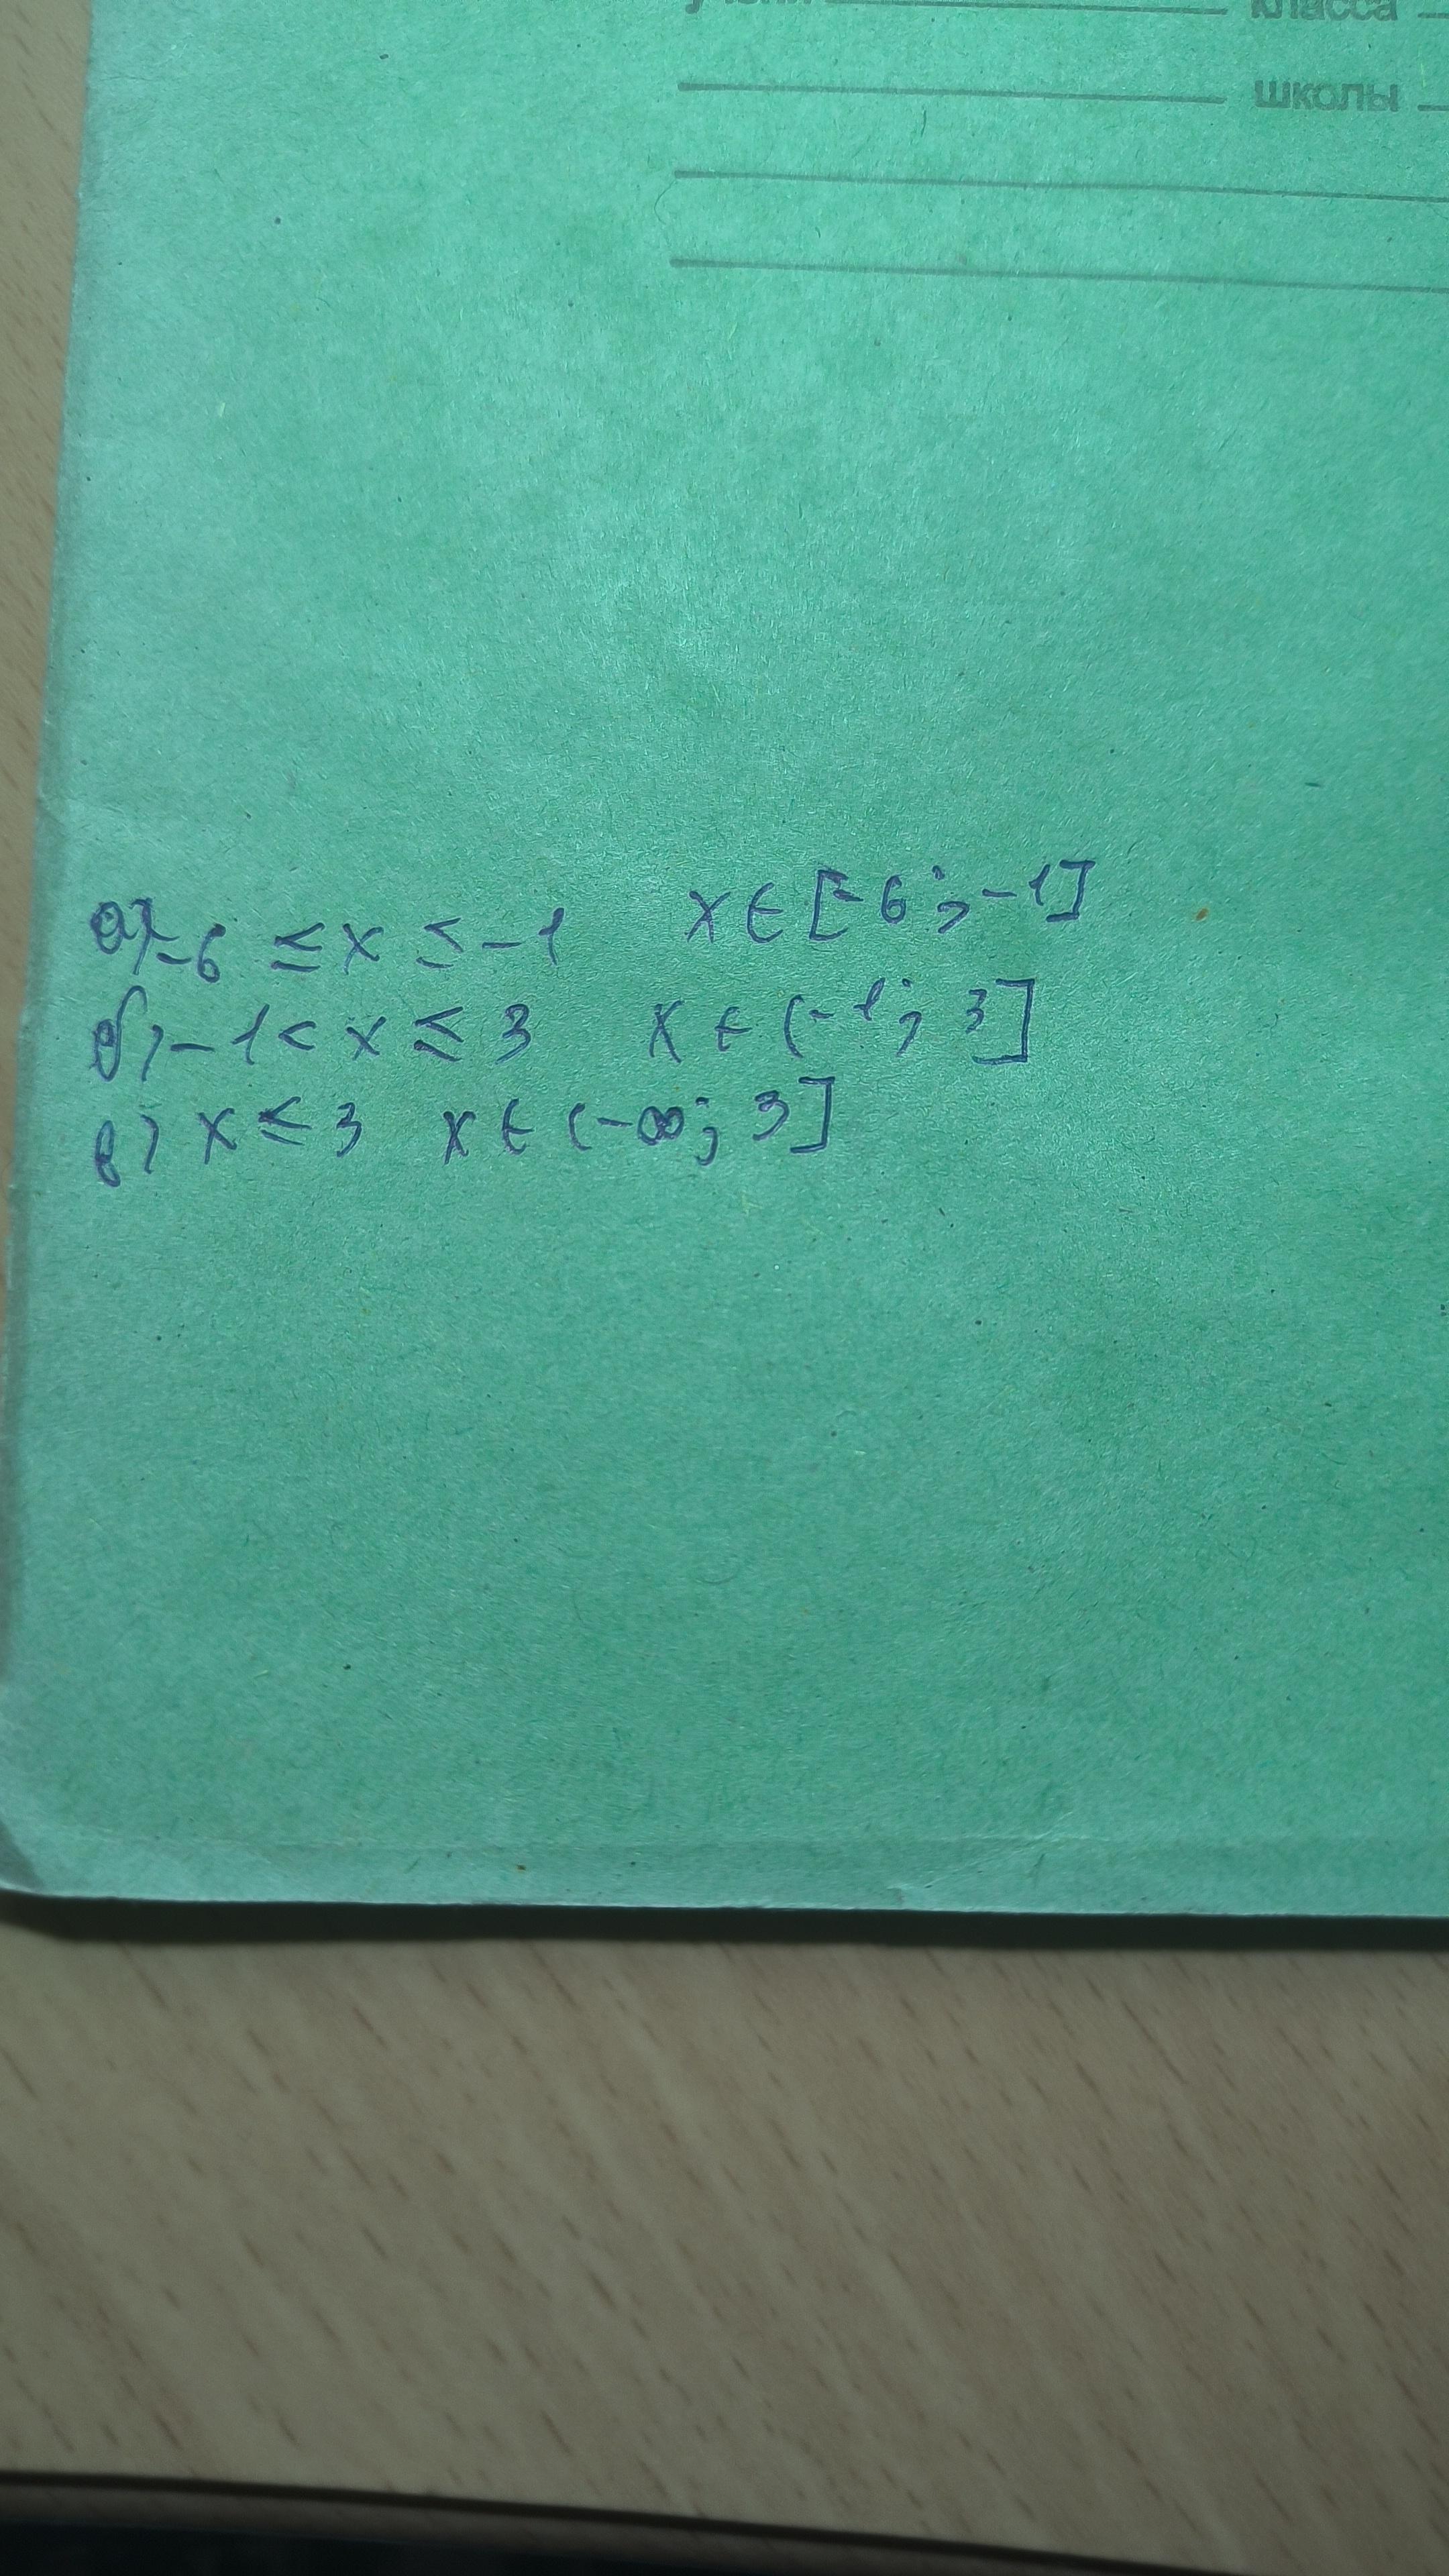 класса
школы
а) -6 ≤ x ≤ -1 x ∈ [-6; -1]
б) -1 < x ≤ 3 x ∈ (-1; 3]
в) x ≤ 3 x ∈ (-∞; 3]